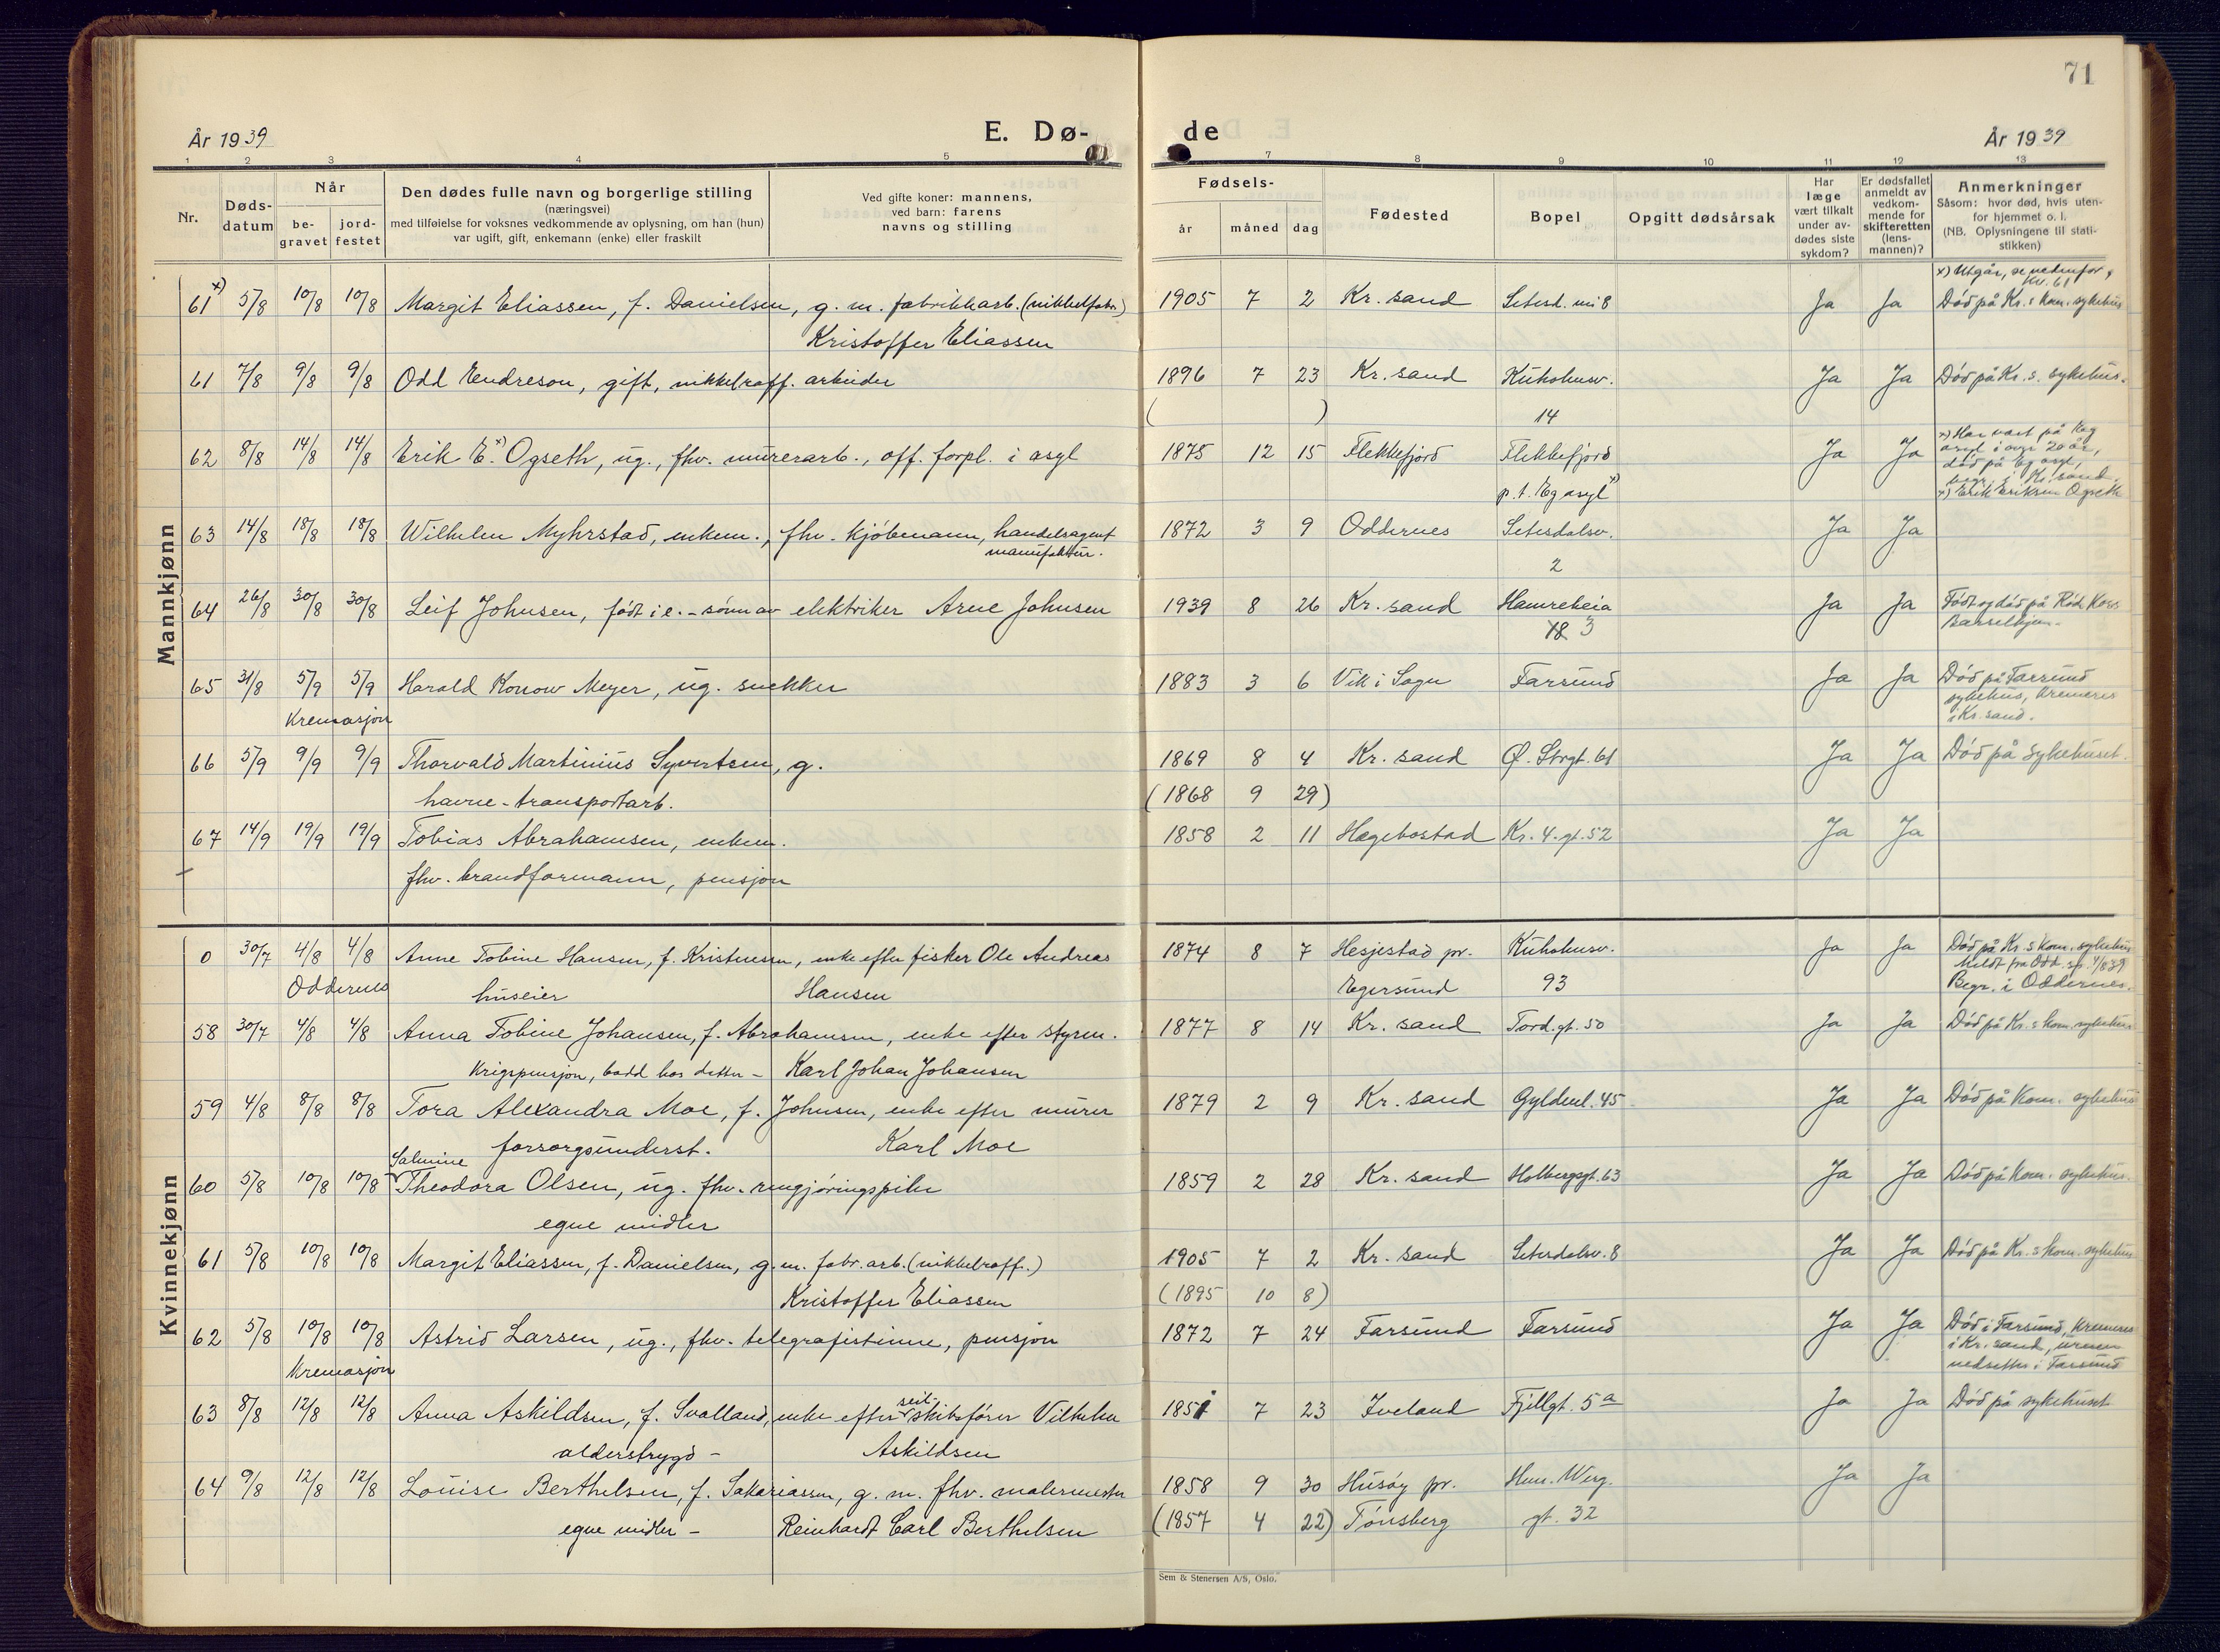 71
År 1939
E. Dø-
de
År 1939
1 2 3 4 5 7 8 9 10 11 12 13
Nr.
Døds-
datum
Når
be-
gravet
jord-
festet
Den dødes fulle navn og borgerlige stilling
(næringsvei)
med tilføielse for voksnes vedkommende av oplysning, om han (hun)
var ugift, gift, enkemann (enke) eller fraskilt
Ved gifte koner: mannens,
ved barn: farens
navns og stilling
Fødsels-
år måned dag
Fødested
Bopel
Opgitt dødsårsak
Har
læge
vært tilkalt
under av-
dødes siste
sykdom?
Er dødsfallet
anmeldt av
vedkom-
mende for
skifteretten
(lens-
mannen)?
Anmerkninger
Såsom: hvor død, hvis uten-
for hjemmet o. l.
(NB. Oplysningene til stati-
stikken)
Mannkjønn
x) Utgår, se nedenfor,
Kv. 61
61 x) 5/8 10/8 10/8 Margit Eliassen, f. Danielsen, g. m. fabrikkarb. (nikkelfabr.) 1905 7 2 Kr. sand Setesd. 8 Ja Ja Død på Kr.s kom. sykehus
Kristoffer Eliassen
61 7/8 9/8 9/8 Odd Endreson, gift, nikkelraff. arbeider 1896 7 23 Kr. sand Kuholmsv. Ja Ja Død på Kr. s. sykehus.
( ) 14
62 8/8 14/8 14/8 Erik E. x) Ogseth, ug., fhv. murerarb., off. forpl. i asyl 1875 12 15 Flekkefjord Flekkefjord Ja Ja x) Har vært på Eg
asyl i over 20 år,
død på Eg asyl,
begr. i Kr. sand.
p. t. Eg asyl x)
x) Erik Eriksen Ogseth
63 14/8 18/8 18/8 Wilhelm Myhrstad, enkem., fhv. kjøbmann, handelsagent 1872 3 9 Oddernes Setesdalsv. Ja Ja
manufaktur.
2
64 26/8 30/8 30/8 Leif Johnsen, født i e. - sønn av elektriker Arne Johnsen 1939 8 26 Kr. sand Hamreheia Ja Ja Født og død på Røde Kors
18 3 Barselhjem.
65 31/8 5/9 5/9 Harald Konow Meyer, ug. snekker 1883 3 6 Vik i Sogn Farsund Ja Ja Død på Farsund
Kremasjon
sykehus, kremeres
i Kr. sand.
66 5/9 9/9 9/9 Thorvald Martinius Syvertsen, g. 1869 8 4 Kr. sand Ø. Strgt. 61 Ja Ja Død på sykehuset.
havne-transportarb. (1868 9 29)
67 14/9 19/9 19/9 Tobias Abrahamsen, enkem. 1858 2 11 Hægebostad Kr. 4. gt. 52 Ja Ja
fhv. brandformann, pensjon
Kvinnekjønn
0 30/7 4/8 4/8 Anne Tobine Hansen, f. Kristensen, enke efter fisker Ole Andreas 1874 8 7 Hesjestad pr. Kuholmsv. Ja Ja Død på Kr.s kom. sykehus
Meldt fra Odd. sp. 4/8 39
Oddernes huseier Hansen Egersund 93 Begr. i Oddernes.
58 30/7 4/8 4/8 Anna Tobine Johansen, f. Abrahamsen, enke efter styrm. 1877 8 14 Kr. sand Tord. gt. 50 Ja Ja Død på Kr.s kom. sykehus
Krigspensjon, bodd hos datter - Karl Johan Johansen
59 4/8 8/8 8/8 Tora Alexandra Moe, f. Johnsen, enke efter murer 1879 2 9 Kr. sand Gyldenl. 45 Ja Ja Død på kom. sykehus
forsorgsunderst. Karl Moe
Salmine
60 5/8 10/8 10/8 Theodora Olsen, ug. fhv. rengjøringspike 1859 2 28 Kr. sand Holbergsgt. 63 Ja Ja Død på kom. sykehus.
egne midler
61 5/8 10/8 10/8 Margit Eliassen, f. Danielsen, g. m. fabr. arb. (nikkelraff.) 1905 7 2 Kr. sand Setesdalsv. 8 Ja Ja Død på Kr.s kom. sykehus
Kristoffer Eliassen (1895 10 8)
62 5/8 10/8 10/8 Astrid Larsen, ug., fhv. telegrafistinne, pensjon 1872 7 24 Farsund Farsund Ja Ja Død i Farsund, kremeres
i Kr. sand, urnen
Kremasjon
nedsettes i Farsund
seil-
63 8/8 12/8 12/8 Anna Askildsen, f. Svalland, enke efter skibsfører Vilhelm 1851 7 23 Iveland Fjellgt. 5a Ja Ja Død på sykehuset
alderstrygd - Askildsen
64 9/8 12/8 12/8 Louise Berthelsen, f. Sakariassen, g. m. fhv. malermester 1858 9 30 Husøy pr. Hen. Werg. Ja Ja
egne midler - Reinhardt Carl Berthelsen (1857 4 22) Tønsberg gt. 32
Sem & Stenersen A/S, Oslo.